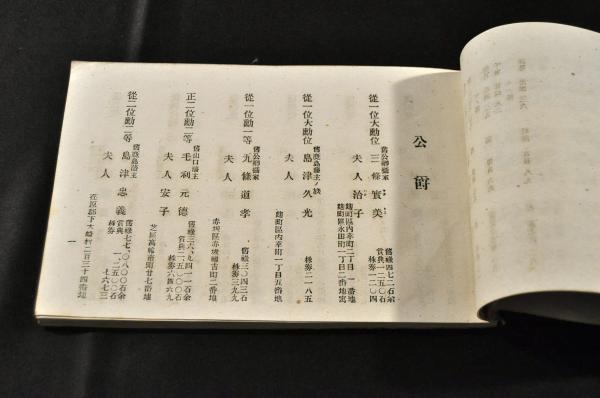 公爵
從一位大勳位
舊公卿攝家
三條實美
夫人治子
舊祿四七二石余
賞典一二五〇石
株券一二〇四
麴町區內幸町一丁目一番地
麴町區永田町一丁目二番地寓
從一位大勳位
舊鹿島藩主ノ族
島津久光
夫人
株券二一八五
麴町區內幸町一丁目五番地
從一位勳一等
舊公卿攝家
九條道孝
夫人
舊祿三〇四三石
株券三九九
赤坂區赤坂福吉町二番地
正二位勳二等
舊山口藩主
毛利元德
夫人安子
舊祿三六、九四一一石余
賞典二、五〇〇〇石
株券六四六九
芝區高輪南町廿七番地
從二位勳二等
舊鹿島藩主
島津忠義
夫人
舊祿七七、〇八〇〇石余
賞典一二、五〇〇〇石
株券七六七三
荏原郡下大崎村二百三十四番地
一